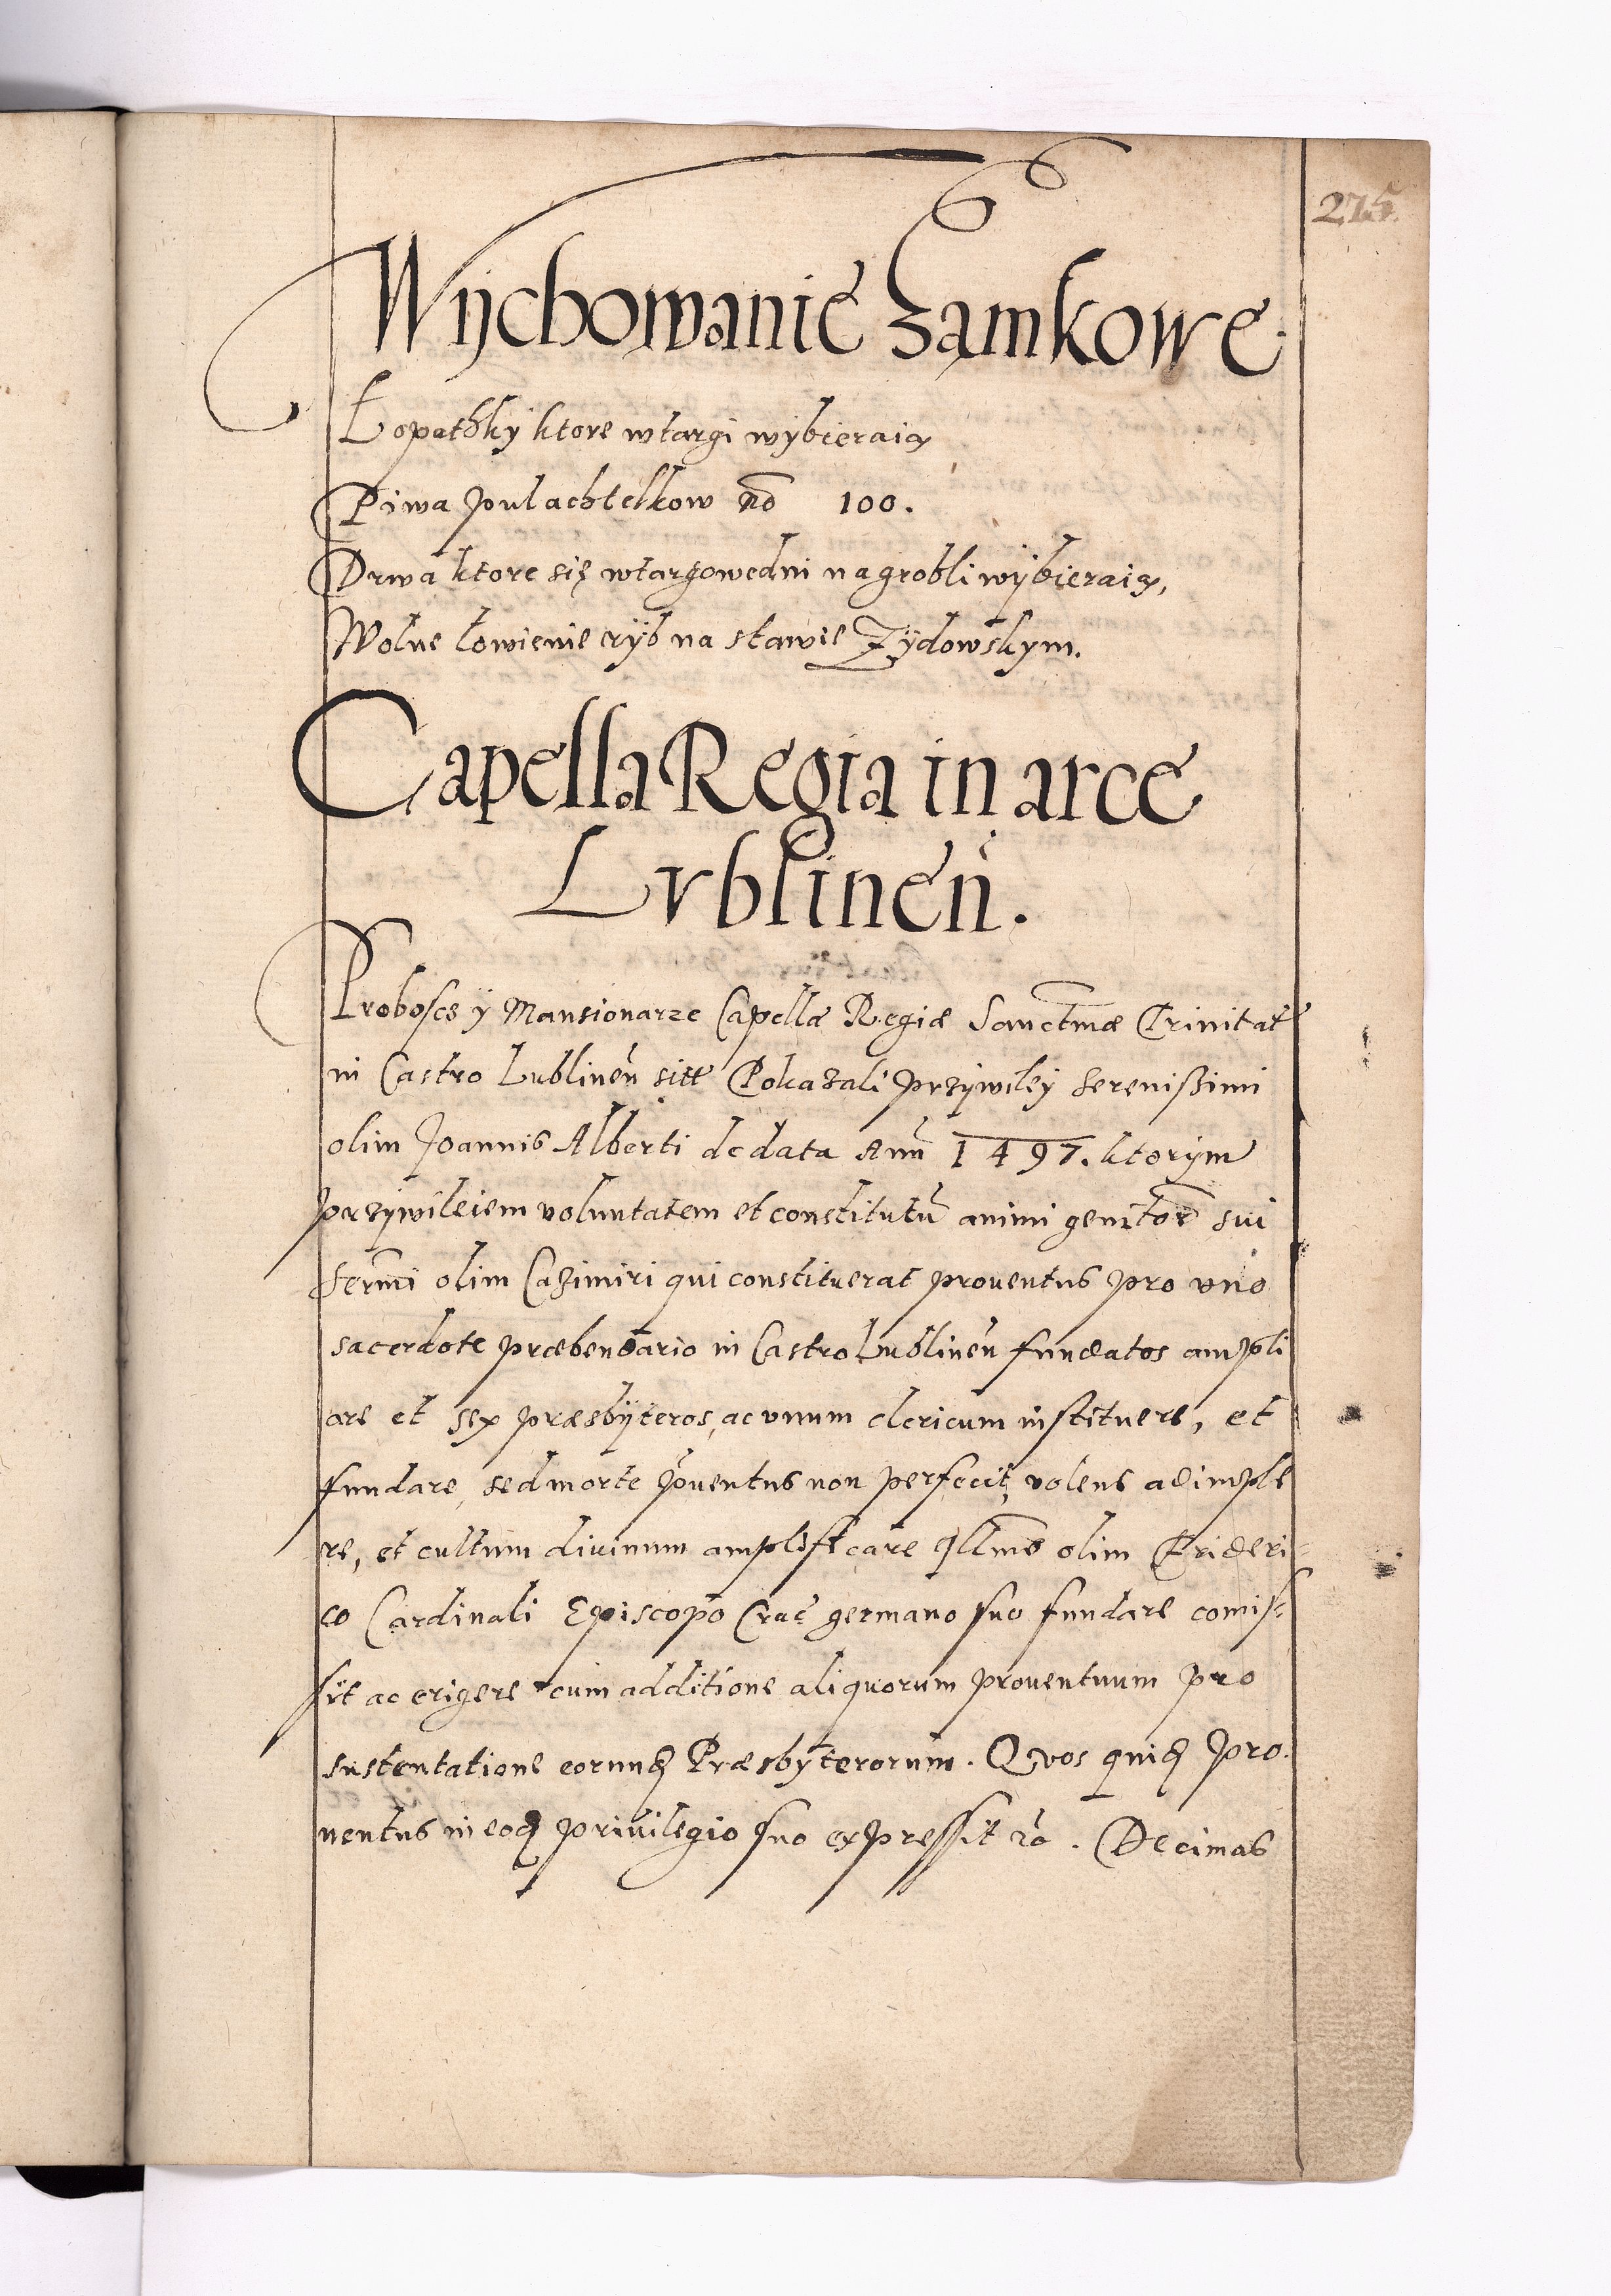 275.
Wÿchowanie Zamkowe.
Łopathky ktore wtargi wybieraią
Piwa pułachtelkow no 100.
Drwa ktore się wtargowedni nagrobli wÿbieraią,
Wolne łowienie rÿb na stawie Zÿdowskym.
Capella Regia in arce
Lvblineń.
Proboscz ÿ Mansionarze Capellæ Regiæ Sanctmæ Trinitat
in Castro Lublineń sitt Pokazali przÿwiley serenißimi
olim Joannis Alberti de data Ann 1497. ktorym
przÿwileiem voluntatem et constitutū animi genitor sui
sermi olim Cazimiri qui constituerat prouentus pro vno
sacerdote præbendario in Castro Lublineń fundatos ampli
are et sex præsbÿteros, ac vnum clericum instituere, et
fundare, sed morte p̄uentus non perfecit, volens adimple
re, et cultum diuinum amplificare Jllmo olim Frideri=
co Cardinali Episcopo Crac germano suo fundare comis=
sit ac erigere cum additione aliquorum prouentuum pro
sustentatione eorunq Præsbÿterorum. Qvos quiq pro.
uentus in eoq priuilegio suo expressit ro. Decimas